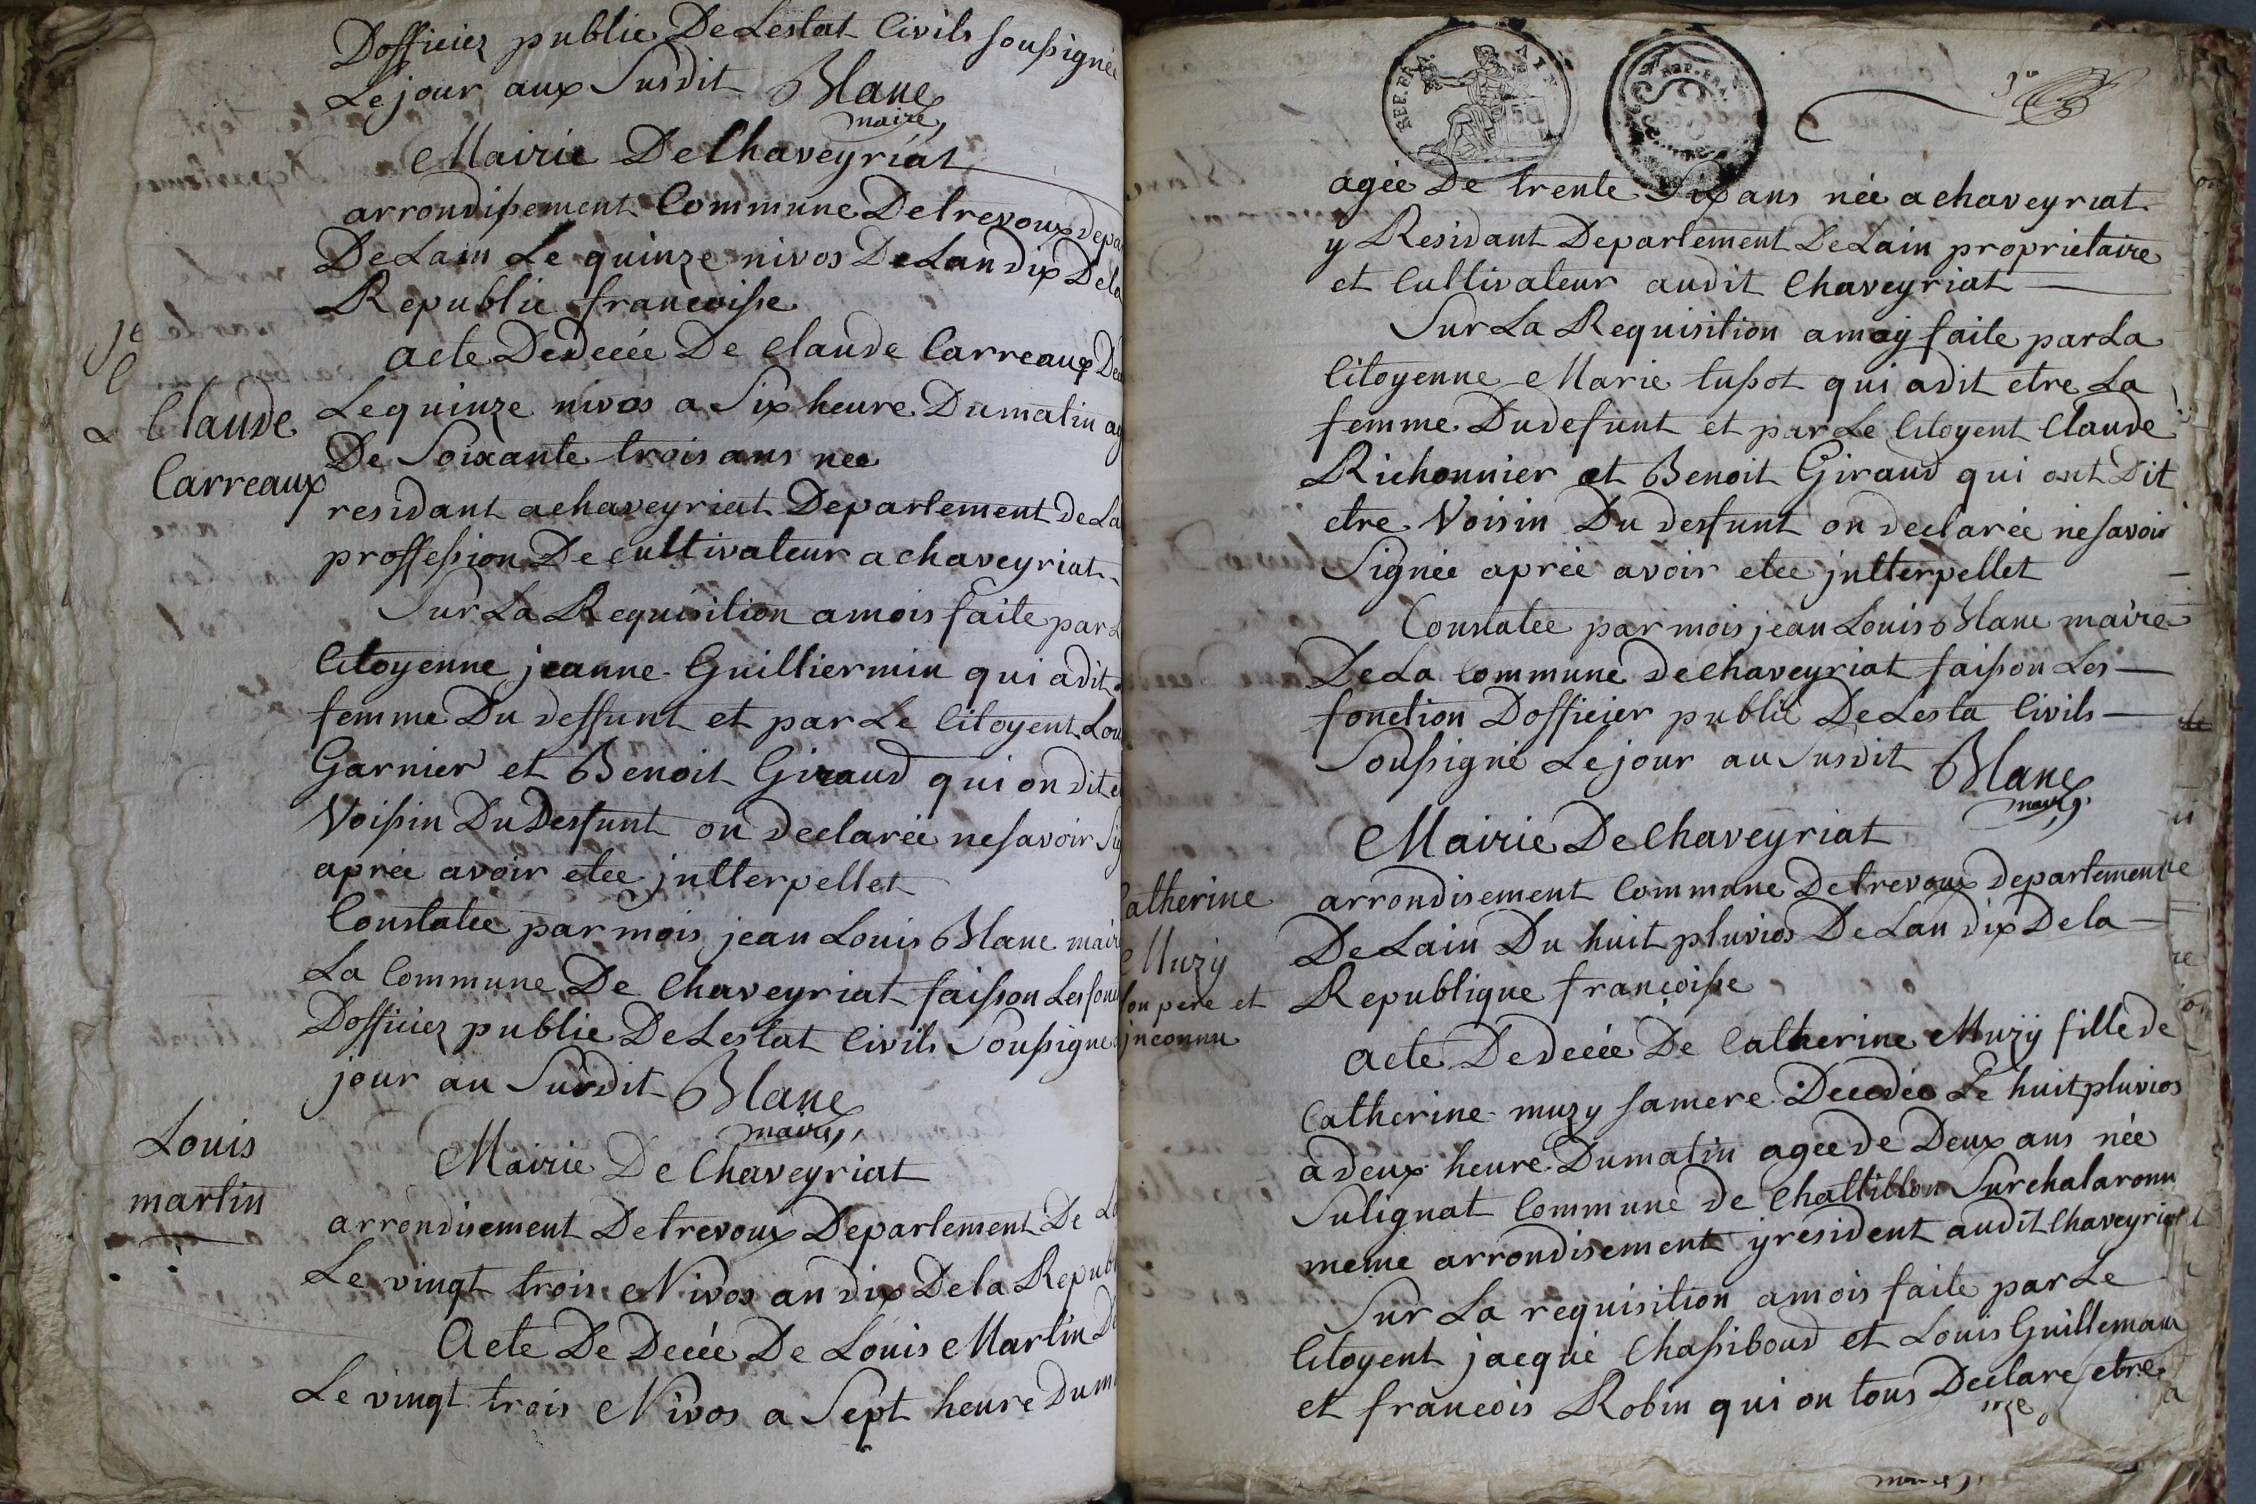 Dofficier public De Lestat Civils soussigné
Le jour aux Susdit Blanc
maire
Mairie De Chaveyriat
arrondissement Commune De trevoux depa
De Lain Le quinze nivos De Lan dix Dela
Republic francoisse
acte De decée De Claude Carreaux De
Claude
Carreaux
Le quinze nivos a Six heure Du matin ag
De Soixante trois ans nee
residant a chaveyriat Departement de La
proffession De cultivateur a chaveyriat
Sur La Requisition a mois faite par L
Citoyenne jeanne Guilliermin qui a dit
femme Du deffunt et par Le Citoyent Lou
Garnier et Benoit Giraud qui on dit e
Voissin Du Desfunt on declarée ne savoir Sig
aprée avoir etee jntterpellet
Constatée par mois jean Louis Blanc mair
La Commune De Chaveyriat faisson Les fon
Dofficier public De Lestat Civils Soussigne
jour au Susdit Blanc
maire
Louis
martin
Mairie De Chaveyriat
arrondisement De trevoux Departement De La
Le vingt trois Nivos an dix De la Repub
Acte De Decée De Louis Martin D
Le vingt trois Nivos a Sept heure Du m
REP. FRA.
agée De trente Six ans née a chaveyriat
y Residant Departement De Lain proprietaire
et Cultivateur audit Chaveyriat
Sur La Requisition a moy faite par La
Citoyenne Marie tussot qui a dit etre La
femme Du defunt et par Le Citoyent Claude
Richonnier et Benoit Giraud qui ont Dit
etre Voisin Du desfunt on declarée ne savoir
Signée aprée avoir etee jntterpellet
Constatee par mois jean Louis Blanc maire
De La Commune de chaveyriat faisson Les
fonction Dofficier public De Lesta Civils
Soussigné Le jour au Susdit Blanc
maire
Mairie De Chaveyriat
arrondisement Commune De trevoux departement
De Lain Du huit pluvios De Lan dix De la
Republique françoisse
atherine
Muzy
son pere et
jnconnu
acte De decée De Catherine Muzÿ fille de
Catherine muzy sa mere Decedée Le huit pluvios
a deux heure Du matin agée de Deux ans née
Sulignat Commune de Chattillon Sur chalaronn
meme arrondisement y resident audit Chaveyriat
Sur La requisition a mois faite par Le
Citoyent jacque Chassiboud et Louis Guillemau
et francois Robin qui on tous Declare etre